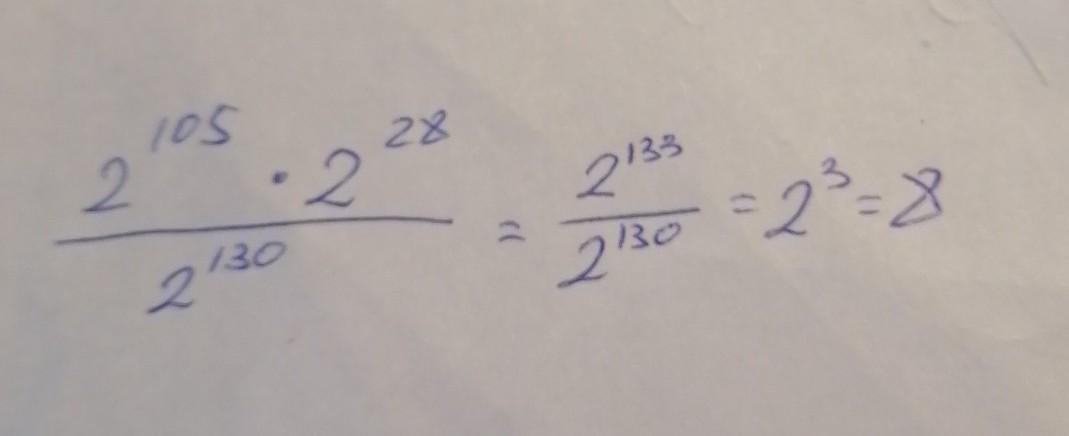 2^105 · 2^28 / 2^130 = 2^133 / 2^130 = 2^3 = 8